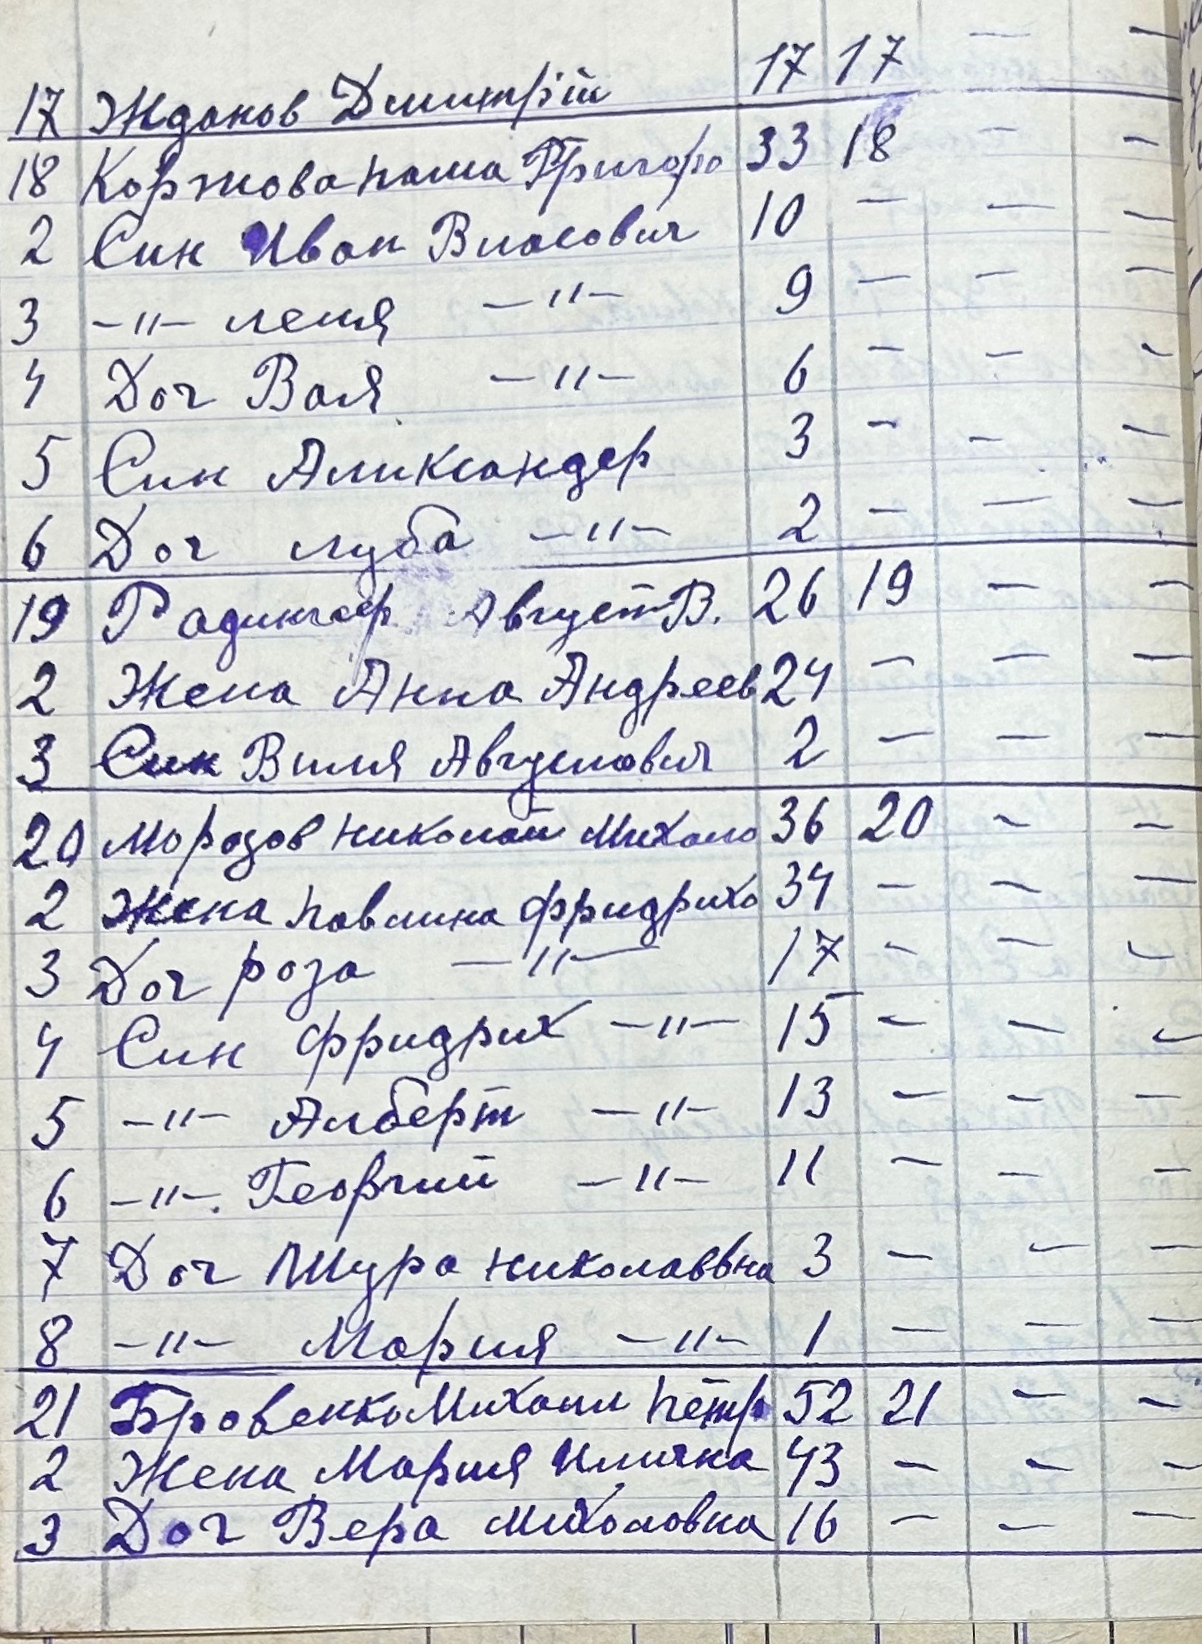 17 Жданов Дмитрий 17 17 — —
18 Коржова паша Григоро 33 18 — —
2 Син Иван Власович 10 — — —
3 -"- леня -"- 9 — — —
4 Доч Валя -"- 6 — — —
5 Син Аликсандер 3 — — —
6 Доч луба -"- 2 — — —
19 Август В. 26 19 — —
2 Жена Анна Андреев 24 — — —
3 Син Виля Августович 2 — — —
20 Морозов николай Михало 36 20 — —
2 Жена павлина фридрихо 34 — — —
3 Доч роза -"- 17 — — —
4 Син фридрих -"- 15 — — —
5 -"- Алберт -"- 13 — — —
6 -"- Георгий -"- 11 — — —
7 Доч Шура николаввна 3 — — —
8 -"- Мария -"- 1 — — —
21 Бровенко Михаил пётр 52 21 — —
2 Жена Мария Илична 43 — — —
3 Доч Вера михаловна 16 — — —